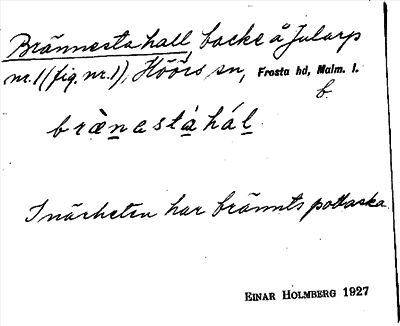 Brännesta hall, backe å Jularp
nr. 1 (fig. nr. 1), Höörs sn, Frosta hd, Malm. l.
b.
brænastàhál.
I närheten har brännts pottaska.
EINAR HOLMBERG 1927